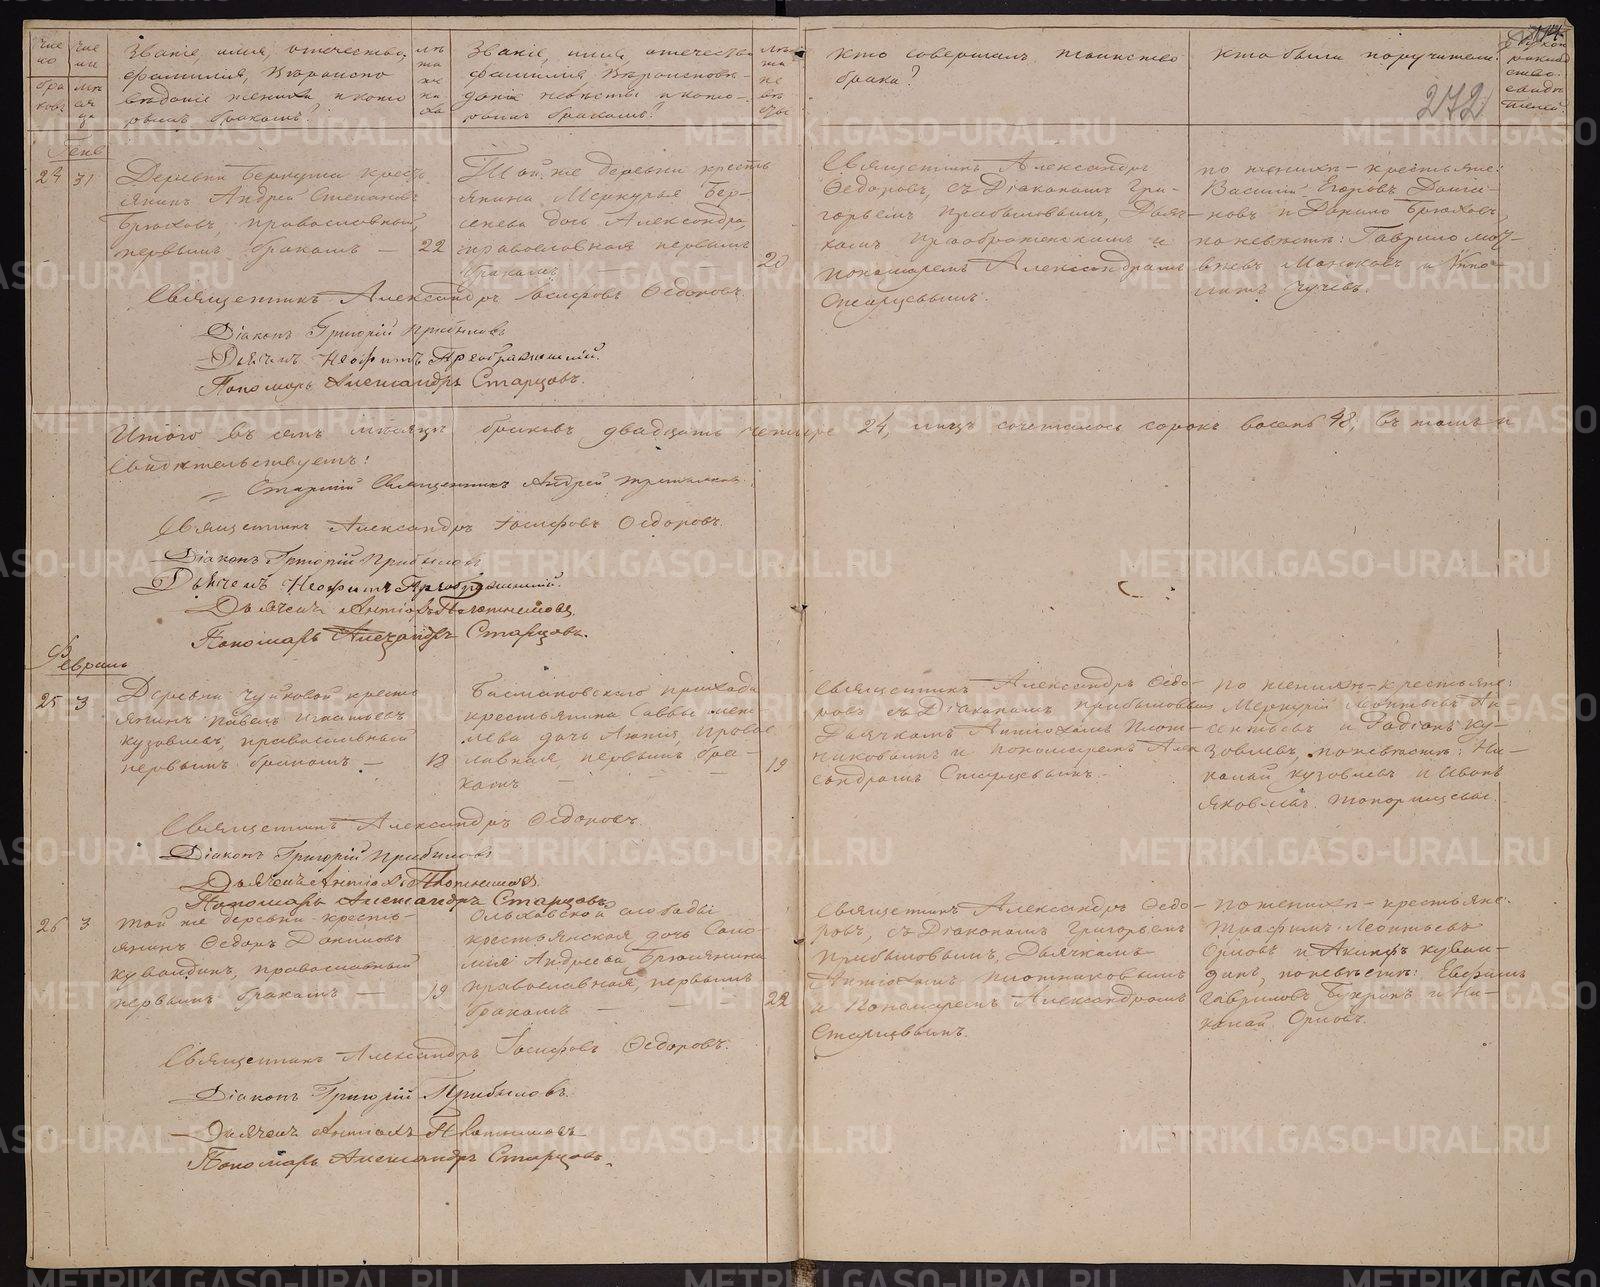 Число браковъ
Число мѣсяца
Званіе, имя, отечество,
фамилія, вѣроиспо
вѣданіе жениха и кото
рымъ бракомъ?
лѣта жениха
Званіе, имя, отечество
фамилія вѣроисповѣ-
даніе невѣсты и кото-
рымъ бракомъ?
лѣта невѣсты
Кто совершалъ таинство
брака?
Кто были поручители
272
Генв
24 31
Деревни крестья
янинъ Андрей Степановъ
Брюховъ, православный,
первымъ бракомъ — 22
Той же деревни кресть
янина Меркурья Бер-
сенева дочь Александра,
православная первымъ
бракомъ — 20
Священникъ Александръ
Ѳедоровъ, съ Діакономъ Гри-
горьемъ Прибыловымъ, Дьяч-
комъ Преображенскимъ и
пономаремъ Александромъ
Старцевымъ.
по женихѣ — крестьяне:
Василій Егоровъ
и Данило Брюховъ,
по невѣстѣ: Гаврило
и
Священникъ Александръ Іосифовъ Ѳедоровъ.
Діаконъ Григорій Прибыловъ
Дьячекъ Неофитъ Преображенскій.
Пономарь Александръ Старцовъ.
Итого въ семъ мѣсяцѣ браковъ двадцать четыре 24, лицъ сочеталось сорокъ восемь 48, въ томъ и
Свидѣтельствуемъ:
Старшій Священникъ Андрей
Священникъ Александръ Іосифовъ Ѳедоровъ.
Діаконъ Григорій Прибыловъ
Дьячекъ Неофитъ Преображенскій.
Дьячекъ Антіохъ Плотниковъ
Пономарь Александръ Старцовъ.
Февраль
25 3
Деревни Чуйковой кресть
янинъ Павелъ Игнатьевъ
Кузовлевъ, православный
первымъ бракомъ — 18
Басмановскаго прихода
крестьянина Саввы
дочь правос
лавная, первымъ бра-
комъ — 19
Священникъ Александръ Ѳедо-
ровъ съ Діакономъ Прибыловымъ
Дьячкомъ Антіохомъ Плот-
никовымъ и пономаремъ Алек
сандромъ Старцевымъ.
по женихѣ — крестьяне:
Меркурій Леонтьевъ
и Родіонъ Ку-
зовлевъ, по невѣстѣ: Ни-
колай Кузовлевъ и Иванъ
Яковлевъ
Священникъ Александръ Ѳедоровъ.
Діаконъ Григорій Прибыловъ
Дьячекъ Антіохъ Плотниковъ.
Пономарь Александръ Старцовъ
26 3
той же деревни кресть-
янинъ Ѳедоръ Даниловъ
Кувалдинъ, православный
первымъ бракомъ — 19
Ольховской слободы
крестьянская дочь Соло-
мія Андреева Брюхянина
православная, первымъ
бракомъ — 22
Священникъ Александръ Ѳедо-
ровъ, съ Діакономъ Григорьемъ
Прибыловымъ, Дьячкомъ
Антіохомъ Плотниковымъ
и Пономаремъ Александромъ
Старцевымъ.
По женихѣ — крестьяне:
Трофимъ Леонтьевъ
Орловъ и Акинфъ Кувал-
динъ, по невѣстѣ: Евфимъ
Гавриловъ и Ни-
колай Орловъ.
Священникъ Александръ Іосифовъ Ѳедоровъ.
Діаконъ Григорій Прибыловъ.
Дьячекъ Антіохъ Плотниковъ
Пономарь Александръ Старцовъ.
METRIKI.GASO-URAL.RU